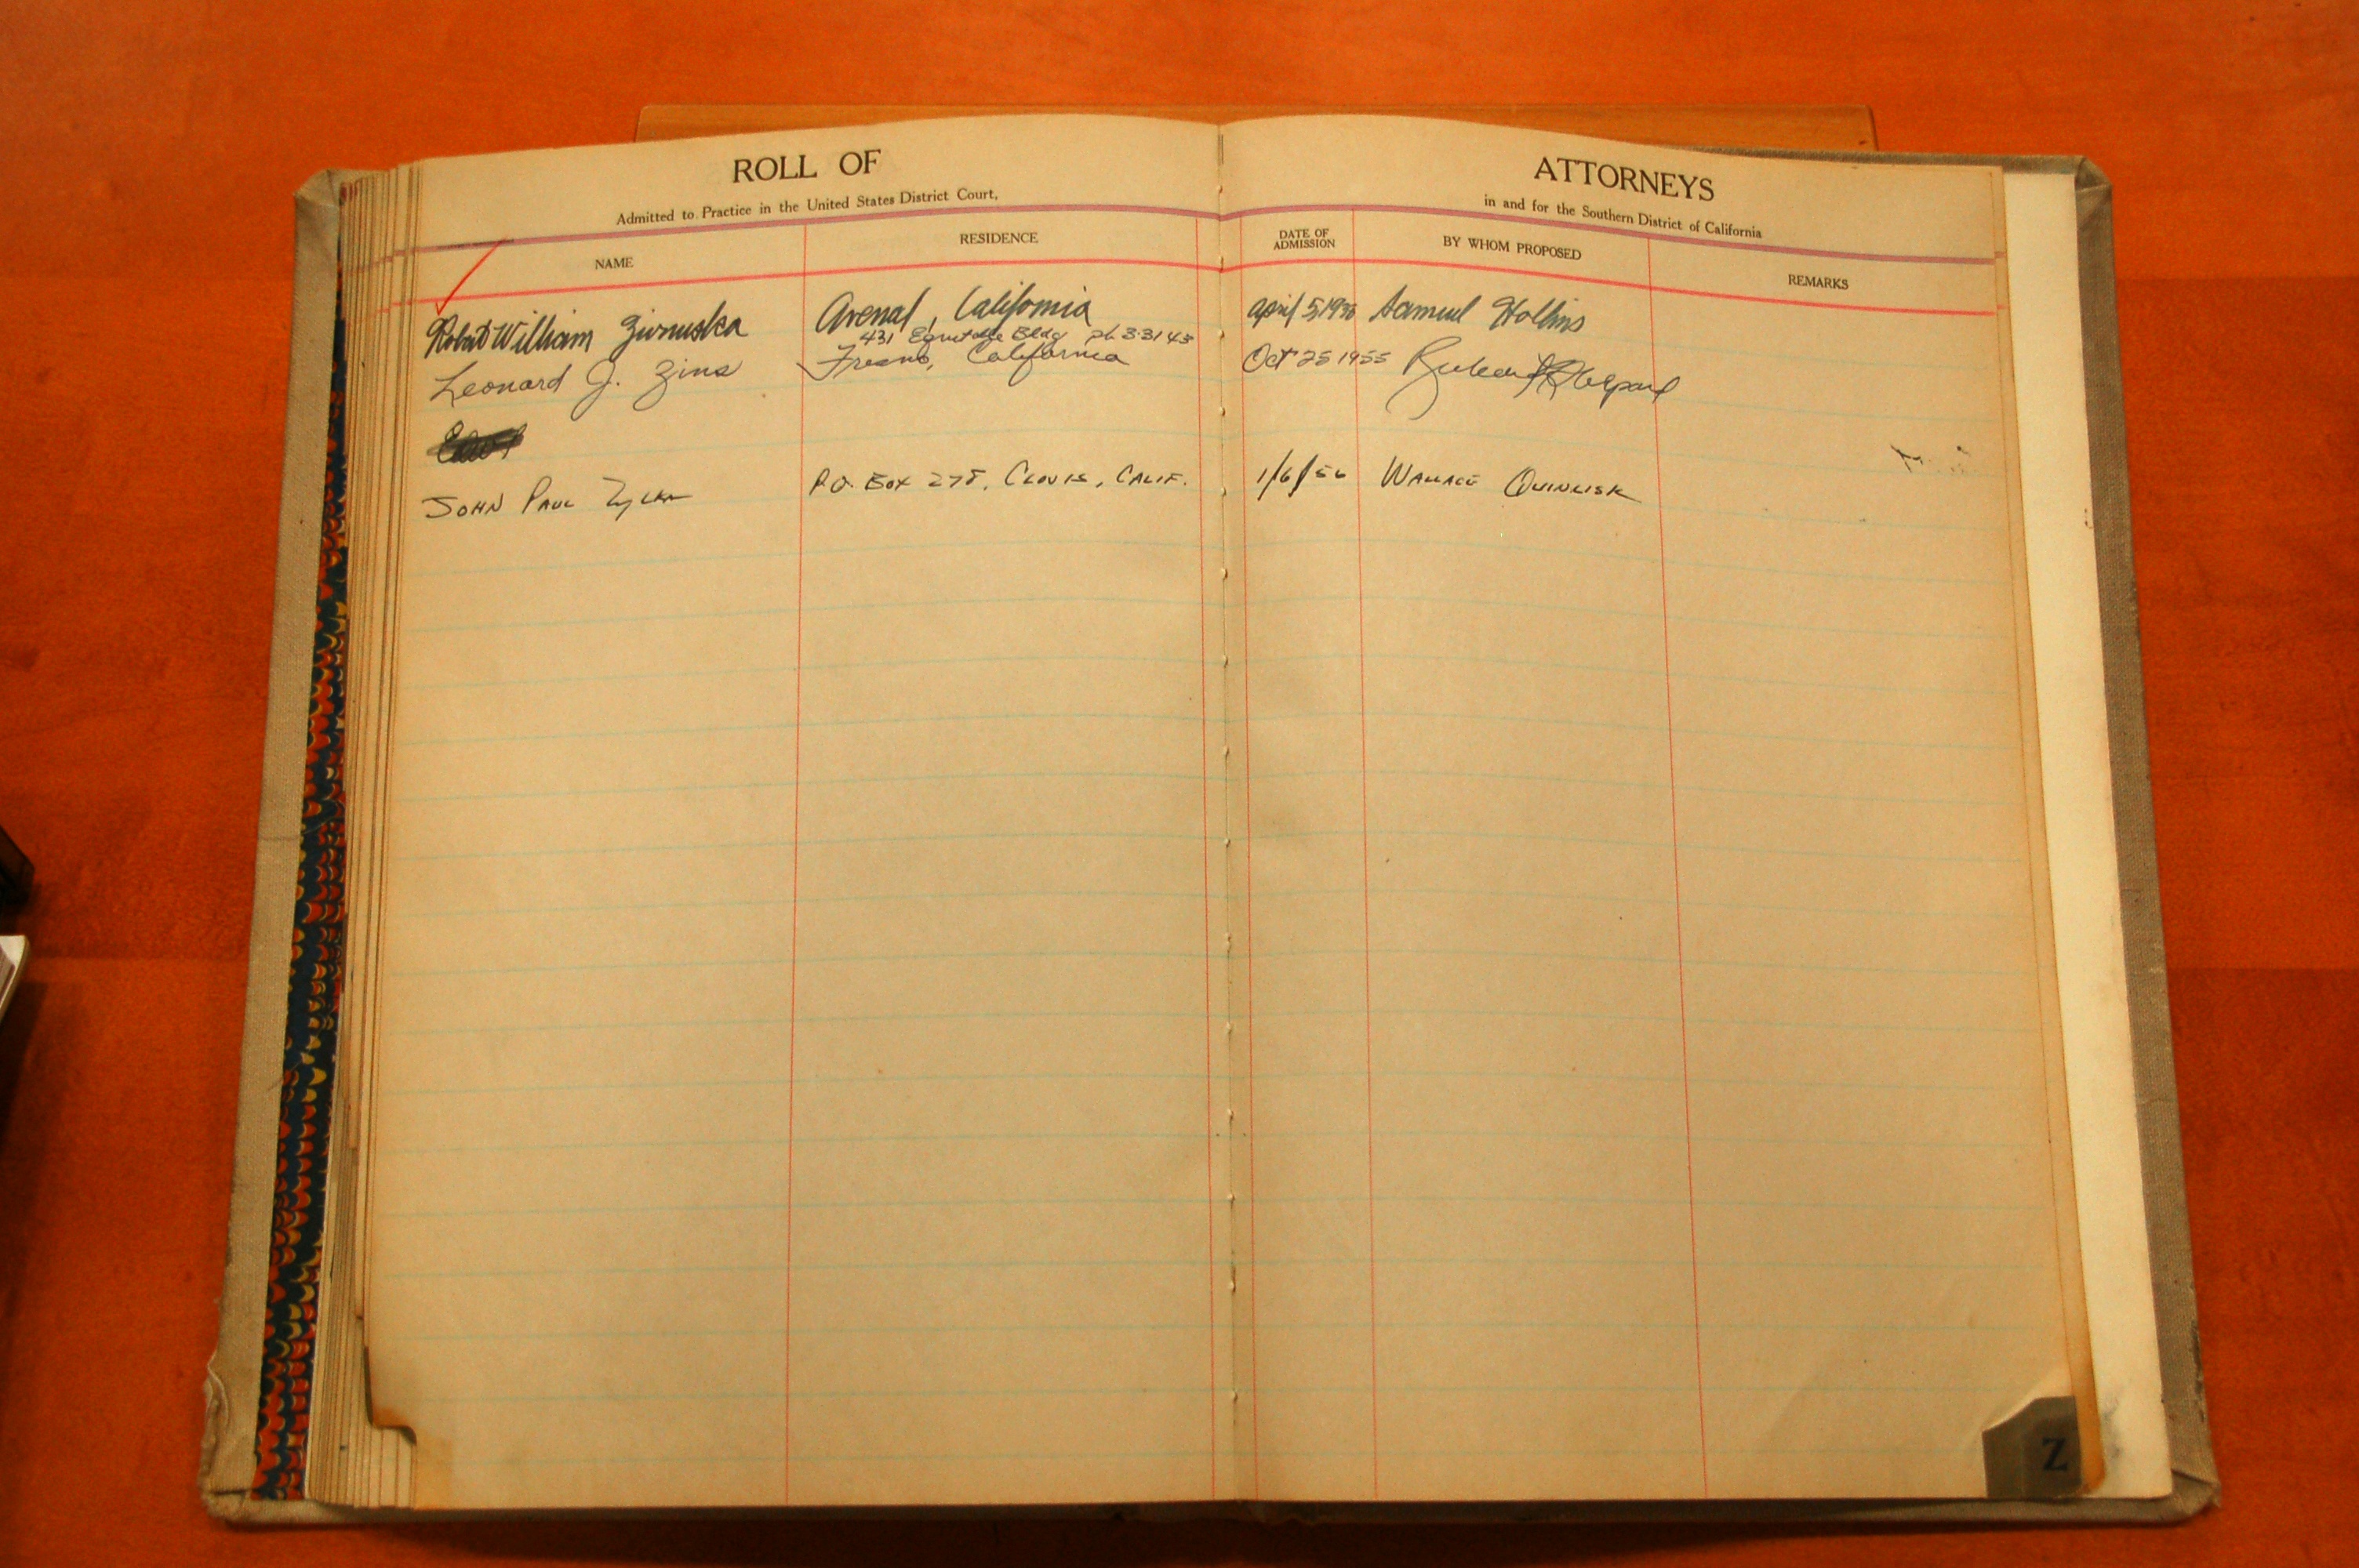 ROLL OF ATTORNEYS
Admitted to Practice in the United States District Court, in and for the Southern District of California
NAME RESIDENCE DATE OF ADMISSION BY WHOM PROPOSED REMARKS
Robert William Zivnuska Avenal, California April 5, Samuel Hollins
431 Equitable Bldg ph 33145
Leonard J. Zins Fresno, California Oct 25 1955
John Paul P.O. Box 278, Clovis, Calif. 1/6/56 Wallace Quinlisk
Z